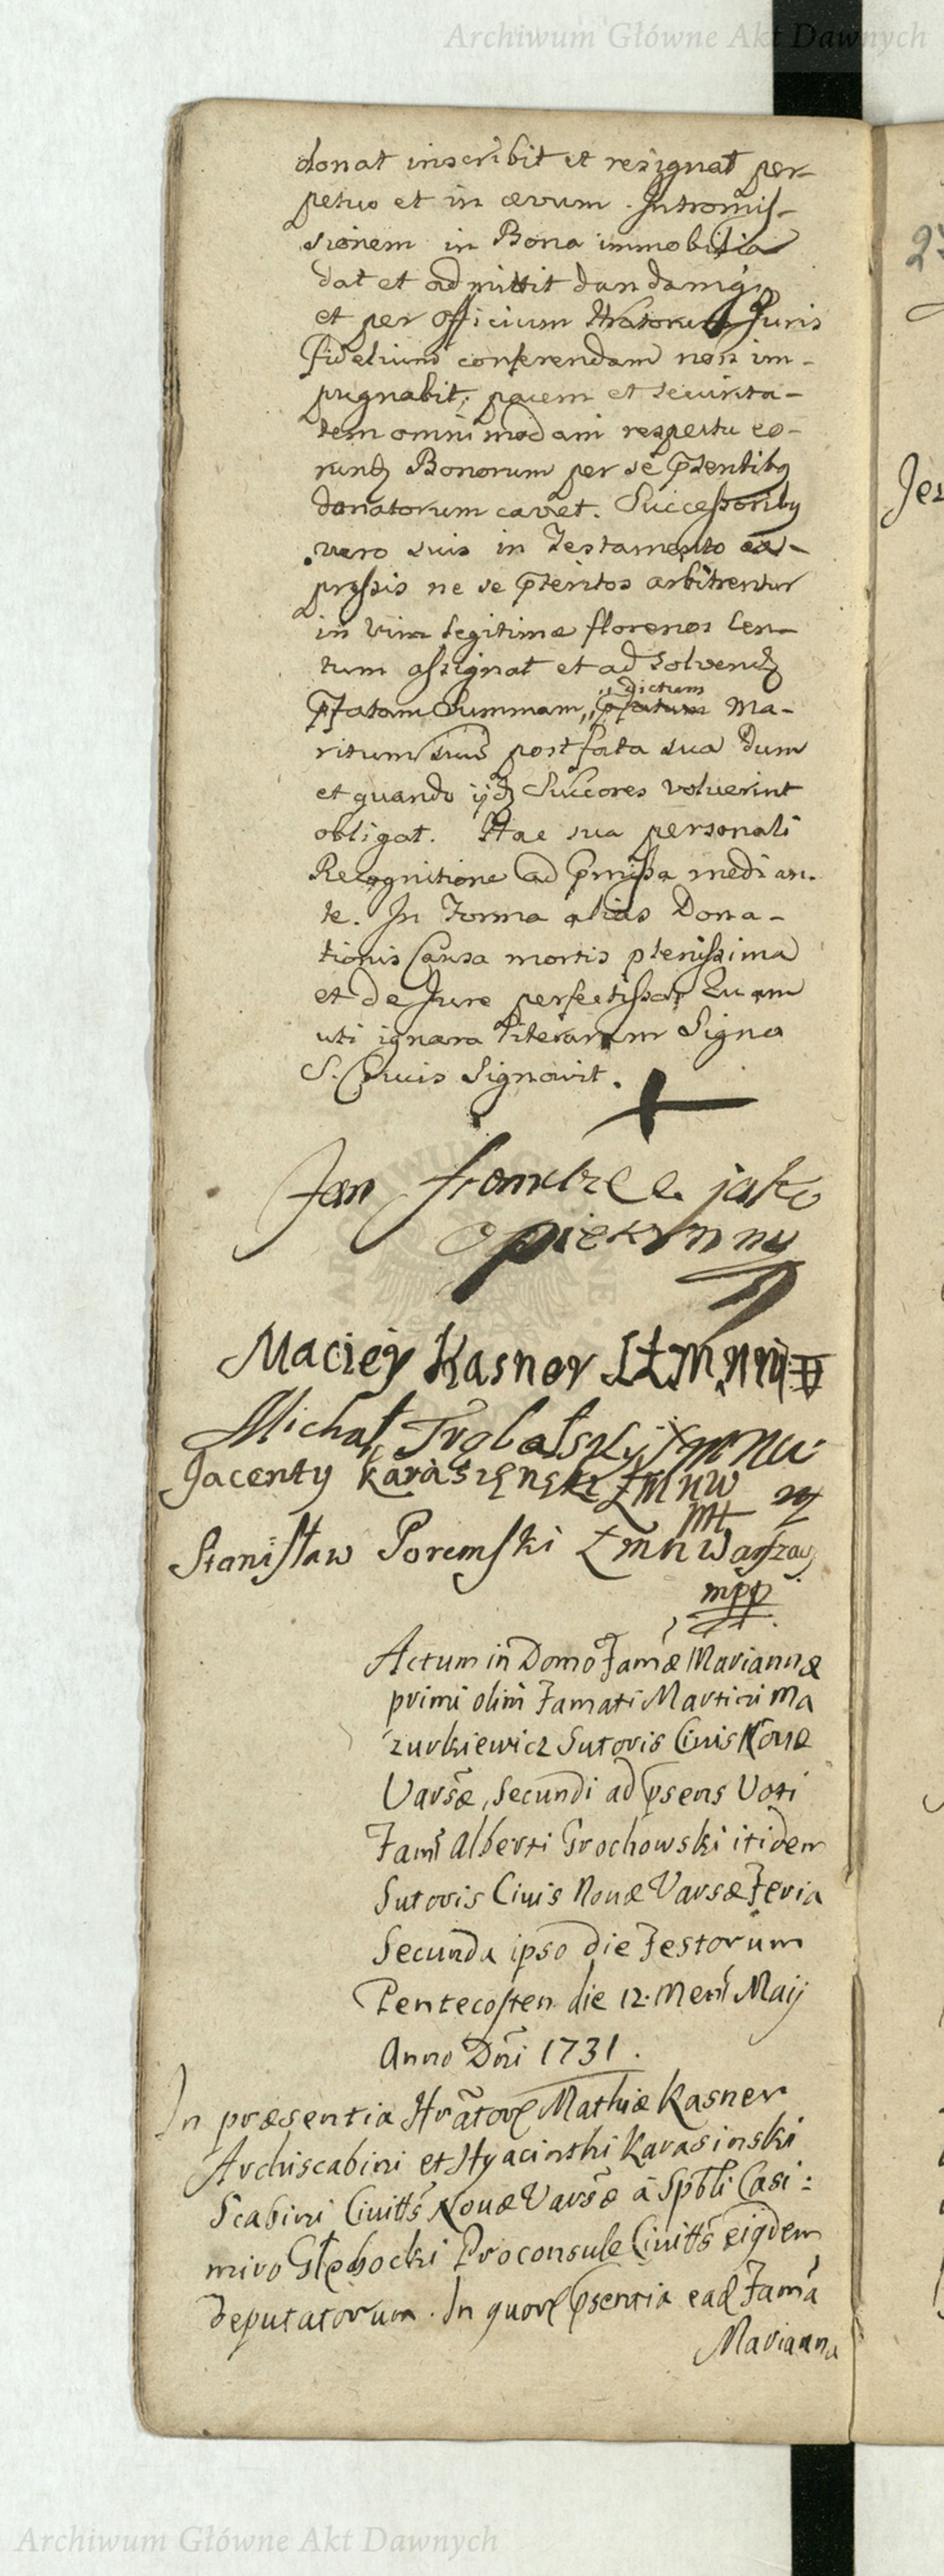 Archiwum Główne Akt Dawnych
donat inscribit et resignat per-
petuo et in ævum. Intromis-
sionem in Bona immobilia
dat et admittit dandamq;
et per officium Hratorum Juris
fidelium conferendam non im-
pugnabit, pacem et securita-
tem omnimodam respectu eo-
rund Bonorum per se pṡentibq
donatorum cavet. Successoribq
vero suis in Testamento ex-
pressis ne se pteritos arbitrentur
in vim legitimæ florenos Cen-
tum assignat et ad solvend
pfatam Summam, dictum
Ma-
ritum suū post fata sua dum
et quando ijd Succores voluerint
obligat. Hac sua personali
Recognitione ad pmissa median-
te. In Forma alias Dona-
tionis Causa mortis plenissima
et de Jure perfectissa. Quam
uti ignara literarum Signo
S. Crucis Signavit.
Jan jako
opiekunny
Maciey Kasner ŁŁMNW
Michał
Jacenty Karasięnski ŁMNW
mp
Stanisław Poremski ŁMNWarszaw
mpp
Actum in Domo Famæ Mariannæ
primi olim Famati Martini Ma
zurkiewicz Sutoris Civis Novæ
Varsæ, Secundi ad psens Voti
Fami Alberti Grochowski itidem
Sutoris Civis Novæ Varsæ Feria
Secunda ipso die Festorum
Pentecosten die 12. Mens Maij
Anno Dni 1731.
In præsentia Hrator Mathiæ Kasner
Archiscabini et Hyacinthi Karasinski
Scabini Civitts Novæ Varsæ â Spbli Casi:
miro Głębocki Proconsule Civitts eiqdem
Deputatorum. In quor psentia ead Fama
Marianna
Jez
Archiwum Główne Akt Dawnych